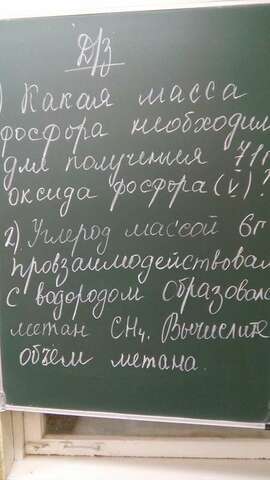 Д/з
) Какая масса
фосфора необходим
для получения 71г
оксида фосфора (V)?
2) Углерод массой 6г
провзаимодействовал
с водородом образовалс
метан CH4. Вычислите
объём метана.